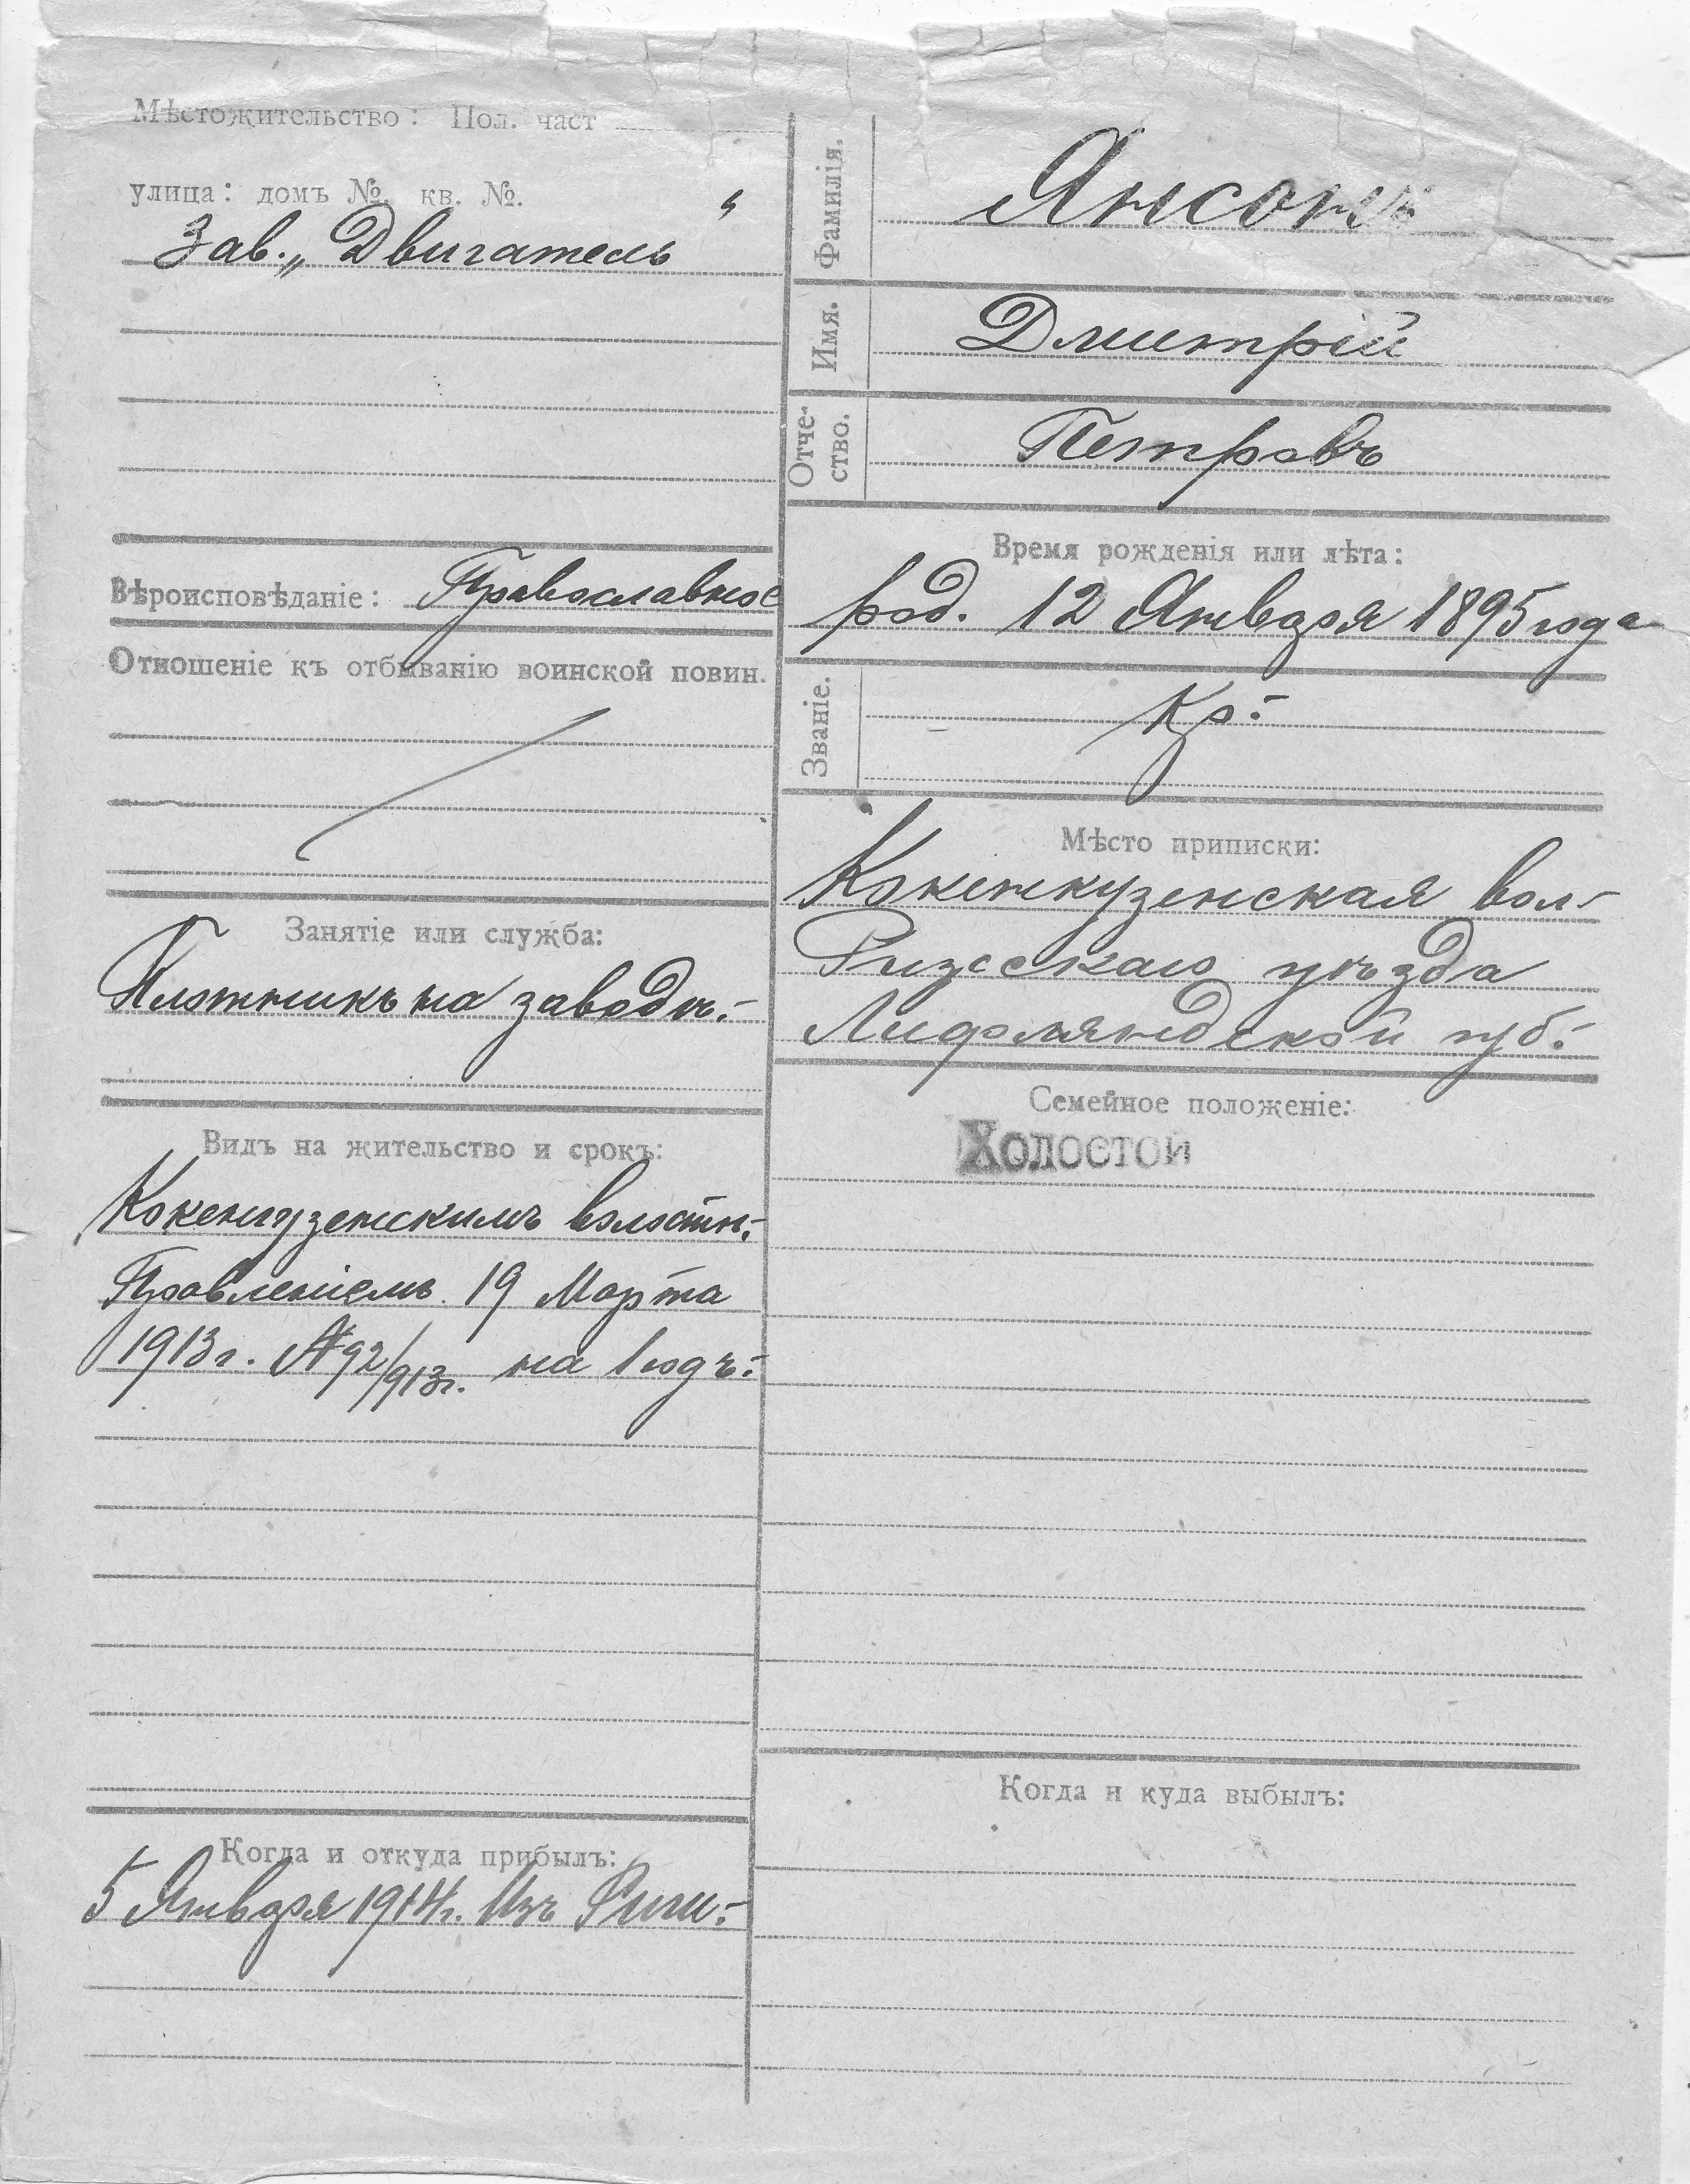 Мѣстожительство: Пол. част
улица: домъ №. кв. №.
Зав. „Двигатель“
Вѣроисповѣданіе: Православное
Отношеніе къ отбыванію воинской повин.
Занятіе или служба:
Плотникъ на заводѣ.
Видъ на жительство и срокъ:
Кокенгузенскимъ волостн.
Правленіемъ 19 Марта
1913г. № 92/913г. на 1 годъ.
Когда и откуда прибылъ:
5 Января 1914г. Изъ Риги.
Фамилія.
Янсонъ
Имя.
Дмитрій
Отче-
ство.
Петровъ
Время рожденія или лѣта:
род. 12 Января 1895 года
Званіе.
Кр.
Мѣсто приписки:
Кокенкузенская вол.
Рижскаго уѣзда
Лифляндской губ.
Семейное положеніе:
Холостой
Когда и куда выбылъ: